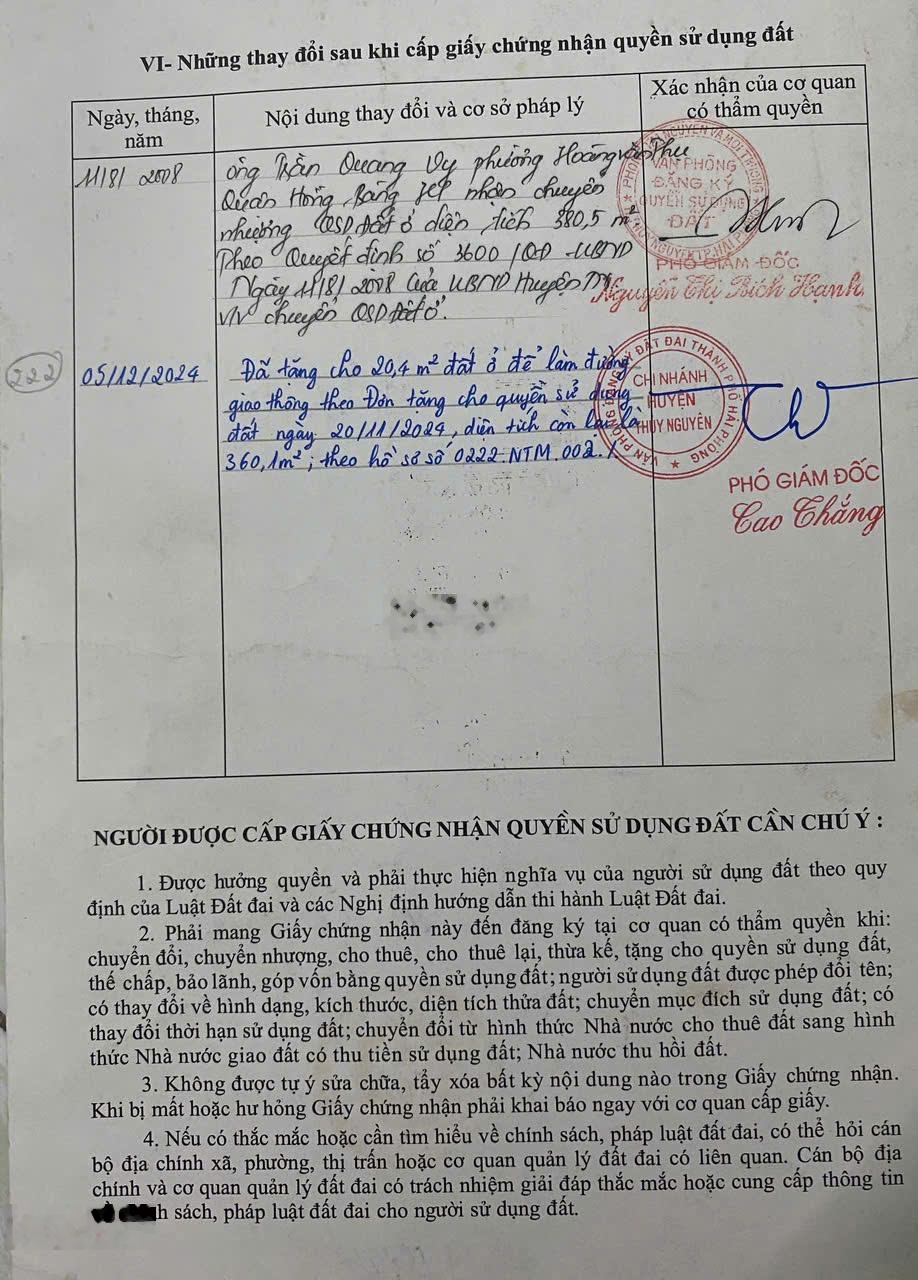 VI- Những thay đổi sau khi cấp giấy chứng nhận quyền sử dụng đất
Ngày, tháng, năm
Nội dung thay đổi và cơ sở pháp lý
Xác nhận của cơ quan có thẩm quyền
11/8/ 2008
ông Trần Quang Vy phường Hoàng văn Thu
Quân Hồng Bàng HP nhận chuyển
nhượng QSD Đất ở diện tích 380,5 m²
Theo Quyết định số 3600 /QĐ -UBND
Ngày 11/8/ 2008 Của UBND Huyện TN
V/v chuyển QSD Đất ở.
VĂN PHÒNG
ĐĂNG KÝ
QUYỀN SỬ DỤNG
ĐẤT
PHÓ GIÁM ĐỐC
Nguyễn Thị Bích Hạnh
222
05/12/2024
Đã tặng cho 20,4 m² đất ở để làm đường
giao thông theo Đơn tặng cho quyền sử dụng
đất ngày 20/11/2024, diện tích còn lại là
360,1m²; theo hồ sơ số 0222.NTM.002./.
VĂN PHÒNG ĐĂNG KÝ ĐẤT ĐAI THÀNH PHỐ HẢI PHÒNG
CHI NHÁNH
HUYỆN
THỦY NGUYÊN
PHÓ GIÁM ĐỐC
Cao Thắng
NGƯỜI ĐƯỢC CẤP GIẤY CHỨNG NHẬN QUYỀN SỬ DỤNG ĐẤT CẦN CHÚ Ý :
1. Được hưởng quyền và phải thực hiện nghĩa vụ của người sử dụng đất theo quy
định của Luật Đất đai và các Nghị định hướng dẫn thi hành Luật Đất đai.
2. Phải mang Giấy chứng nhận này đến đăng ký tại cơ quan có thẩm quyền khi:
chuyển đổi, chuyển nhượng, cho thuê, cho thuê lại, thừa kế, tặng cho quyền sử dụng đất,
thế chấp, bảo lãnh, góp vốn bằng quyền sử dụng đất; người sử dụng đất được phép đổi tên;
có thay đổi về hình dạng, kích thước, diện tích thửa đất; chuyển mục đích sử dụng đất; có
thay đổi thời hạn sử dụng đất; chuyển đổi từ hình thức Nhà nước cho thuê đất sang hình
thức Nhà nước giao đất có thu tiền sử dụng đất; Nhà nước thu hồi đất.
3. Không được tự ý sửa chữa, tẩy xóa bất kỳ nội dung nào trong Giấy chứng nhận.
Khi bị mất hoặc hư hỏng Giấy chứng nhận phải khai báo ngay với cơ quan cấp giấy.
4. Nếu có thắc mắc hoặc cần tìm hiểu về chính sách, pháp luật đất đai, có thể hỏi cán
bộ địa chính xã, phường, thị trấn hoặc cơ quan quản lý đất đai có liên quan. Cán bộ địa
chính và cơ quan quản lý đất đai có trách nhiệm giải đáp thắc mắc hoặc cung cấp thông tin
sách, pháp luật đất đai cho người sử dụng đất.